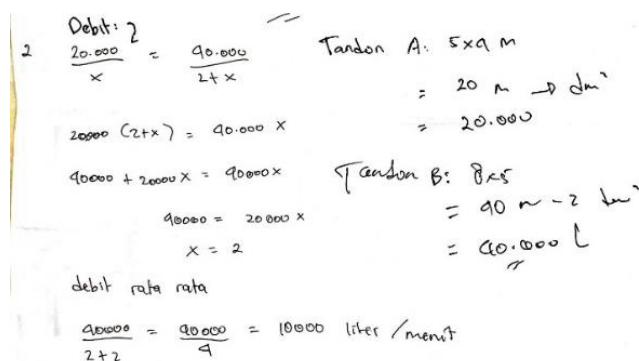 2
Debit: 2
20.000 / x = 40.000 / 2+x
20000 (2+x) = 40.000 x
40000 + 20000 x = 40000x
40000 = 20 000 x
x = 2
debit rata rata
40000 / 2+2 = 40000 / 4 = 10000 liter / menit
Tandon A: 5x4 m
= 20 m → dm³
= 20.000
Tandon B: 8x5
= 40 m → dm³
= 40.000 L